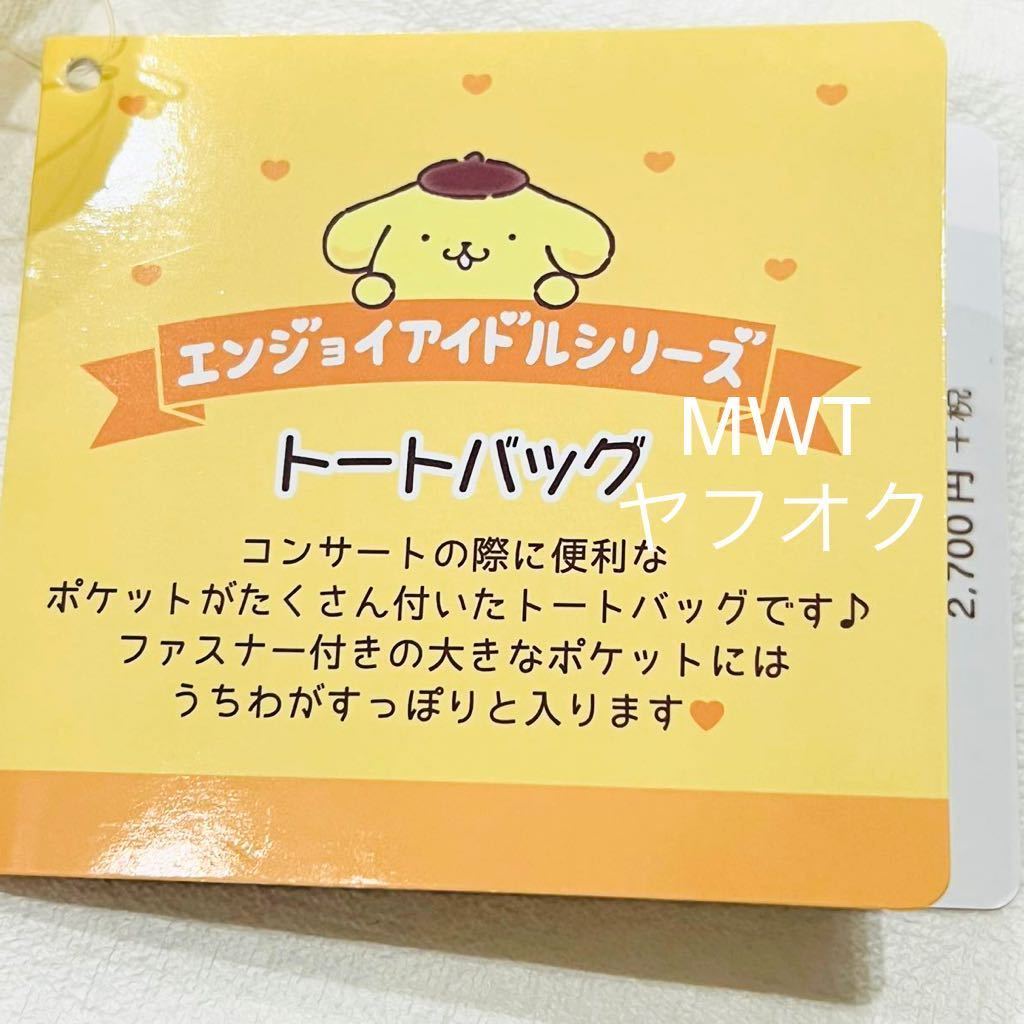 エンジョイアイドルシリーズ
トートバッグ
MWT
ヤフオク
コンサートの際に便利な
ポケットがたくさん付いたトートバッグです♪
ファスナー付きの大きなポケットには
うちわがすっぽりと入ります♥
2,700円+税